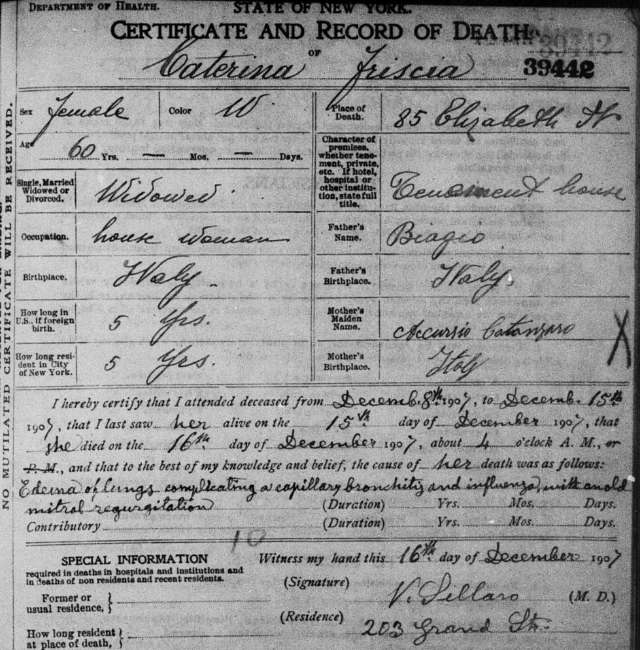 DEPARTMENT OF HEALTH. STATE OF NEW YORK.
CERTIFICATE AND RECORD OF DEATH
39442
OF
Caterina Friscia 39442
NO MUTILATED CERTIFICATE WILL BE RECEIVED.
Sex Female Color W Place of Death. 85 Elizabeth St
Age 60 Yrs. — Mos. — Days.
Character of premises, whether tenement, private, etc. If hotel, hospital or other institution, state full title. Tenement house
Single, Married Widowed or Divorced. Widowed
Occupation. house woman Father's Name. Biagio
Birthplace. Italy. Father's Birthplace. Italy.
How long in U.S., if foreign birth. 5 Yrs. Mother's Maiden Name. Accursio Catanzaro X
How long resident in City of New York. 5 Yrs. Mother's Birthplace. Italy
I hereby certify that I attended deceased from Decemb. 8th 1907, to Decemb. 15th
1907, that I last saw her alive on the 15th day of December 1907, that
she died on the 16th day of December 1907, about 4 o'clock A. M., or
P. M., and that to the best of my knowledge and belief, the cause of her death was as follows:
Edema of lungs complicating a capillary bronchitis and influenza, with an old
mitral regurgitation (Duration) Yrs. Mos. Days.
Contributory (Duration) Yrs. Mos. Days.
10
SPECIAL INFORMATION Witness my hand this 16th day of December 1907
required in deaths in hospitals and institutions and
in deaths of non residents and recent residents.
(Signature) V. Sellaro (M. D.)
Former or usual residence,
(Residence) 203 Grand Str.
How long resident at place of death,